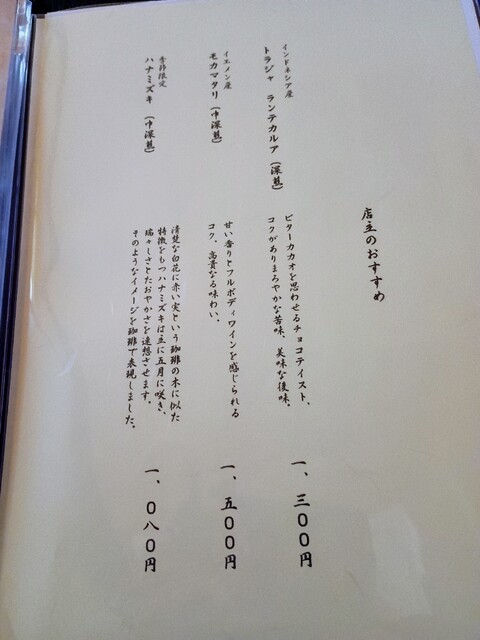 店主のおすすめ
インドネシア産
トラジャ ランテカルア(深煎)
ビターカカオを思わせるチョコテイスト、
コクがありまろやかな苦味、美味な後味。
一、三〇〇円
イエメン産
モカマタリ(中深煎)
甘い香りとフルボディワインを感じられる
コク、高貴なる味わい。
一、五〇〇円
季節限定
ハナミズキ(中深煎)
清楚な白花に赤い実という珈琲の木に似た
特徴をもつハナミズキは主に五月に咲き、
瑞々しさとたおやかさを連想させます。
そのようなイメージを珈琲で表現しました。
一、〇八〇円